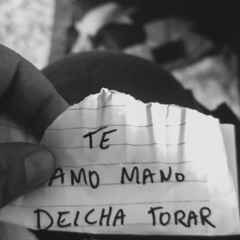 TE
AMO MANO
DEICHA TORAR